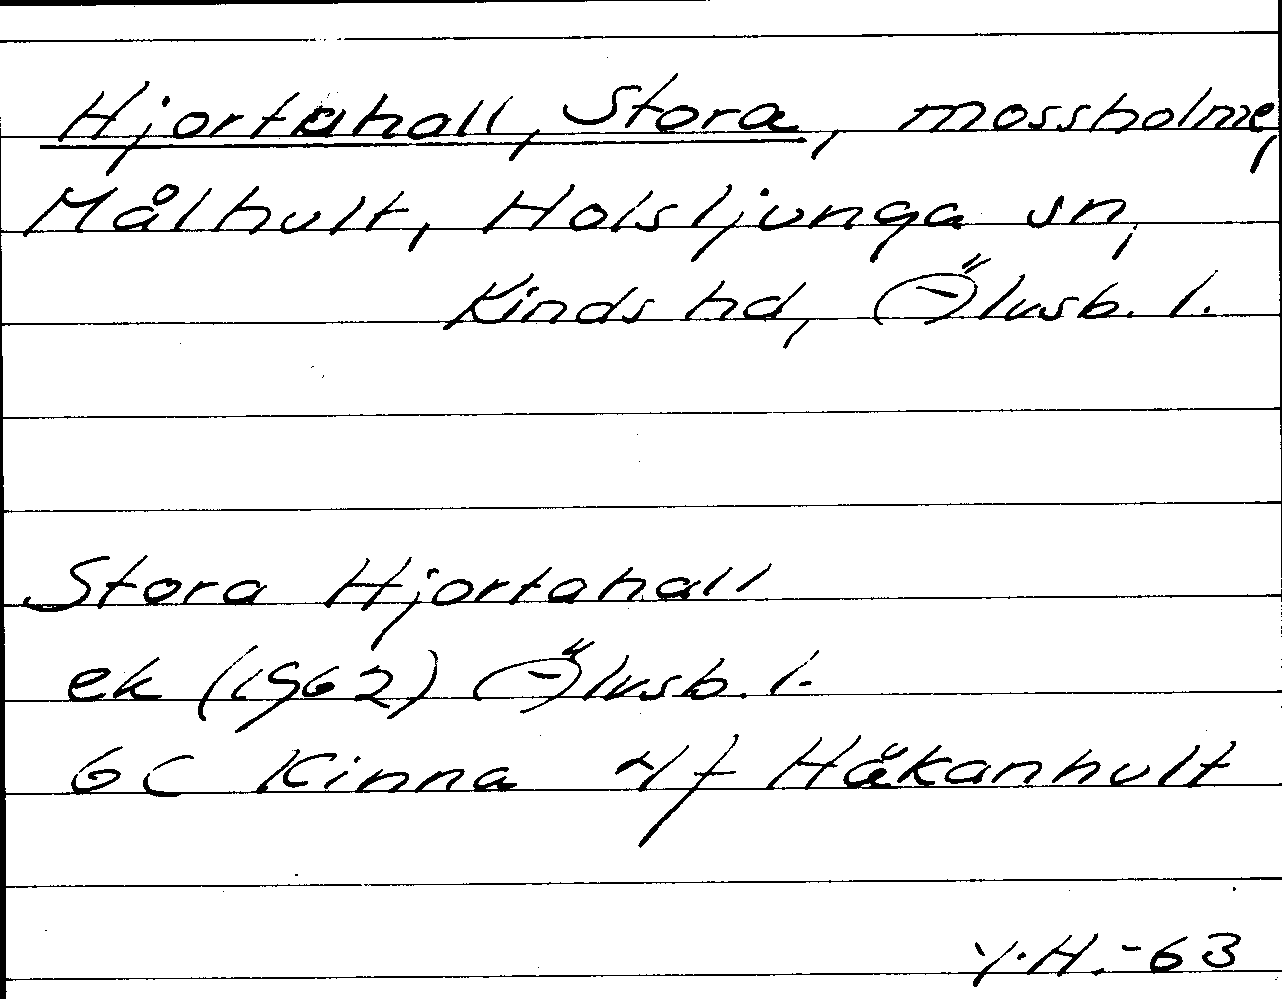 Hjortahall, Stora, mossholme,
Målhult, Holsljunga sn,
Kinds hd, Älvsb. l.
Stora Hjortahall
ek (1962) Älvsb. l.
6C Kinna 4f Håkanhult
Y.H.-63